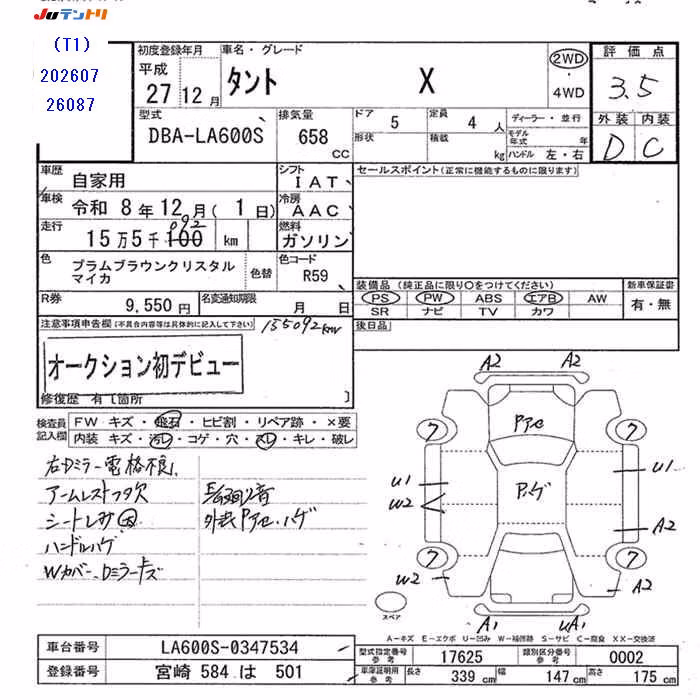 Juテントリ
(T1)
202607
26087
初度登録年月
平成
27年 12月
車名・グレード
タント X
2WD
・
4WD
評価点
3.5
外装 内装
D C
型式
DBA-LA600S
排気量
658
CC
ドア 5
定員 4 人
形状
積載 kg
ディーラー・並行
モデル年式 年
ハンドル 左・右
車歴 自家用
シフト IAT
セールスポイント(正常に機能するものに限ります)
車検 令和 8年 12月 (1日)
冷房 AAC
走行 15万5千100 km
092
燃料 ガソリン
色 プラムブラウンクリスタル
マイカ
色替
色コード R59
装備品 (純正品に限り○をつけてください)
新車保証書
PS PW ABS エアB AW
有・無
SR ナビ TV カワ
R券 9,550円
名変通知期限 月 日
注意事項申告欄(不具合内容等は具体的に記入して下さい)
155092km
後日品
オークション初デビュー
修復歴 有〔箇所 〕
検査員
記入欄
FW キズ・飛石・ヒビ割・リペア跡・×要
内装 キズ・汚レ・コゲ・穴・スレ・キレ・破レ
右Dミラー電格不良
アームレストフタ欠
シートしみ 大
ハンドルハゲ
Wカバー、Dミラーキズ
外装Pアセ・ハゲ
A2 A2
Pアセ
7 7
P.ハゲ
U1 U1
W2
A2
7 7
W2 A2
スペア
A1 UA1
A-キズ E-エクボ U-凹み W-補修跡 S-サビ C-腐食 XX-交換済
車台番号 LA600S-0347534
型式指定番号
参考
17625
類別区分番号
参考
0002
登録番号 宮崎 584 は 501
車庫証明用
参考
長さ 339 cm 幅 147 cm 高さ 175 cm